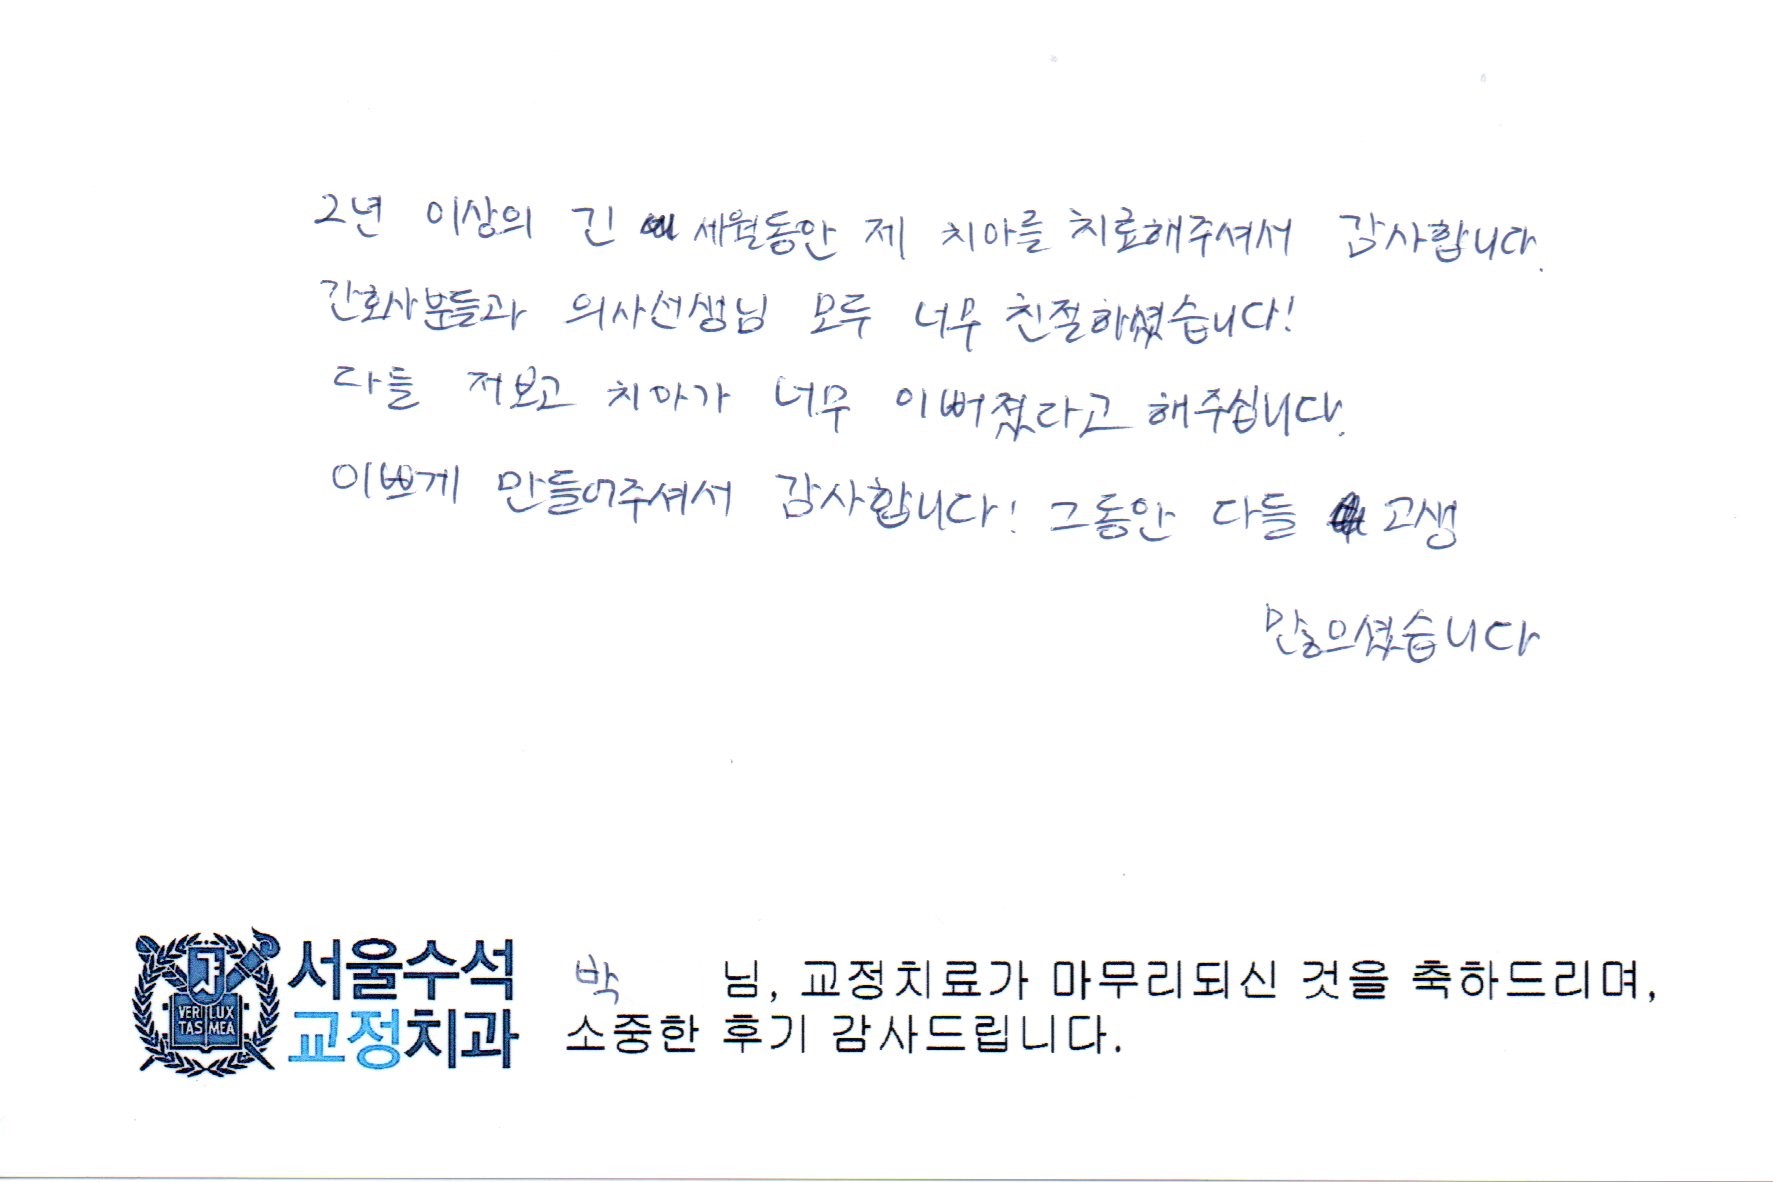 2년 이상의 긴 세월동안 제 치아를 치료해주셔서 감사합니다.
간호사분들과 의사선생님 모두 너무 친절하셨습니다!
다들 저보고 치아가 너무 이뻐졌다라고 해주십니다.
이쁘게 만들어주셔서 감사합니다! 그동안 다들 고생
많으셨습니다
VERI LUX
TAS MEA
서울수석
교정치과
박 님, 교정치료가 마무리되신 것을 축하드리며,
소중한 후기 감사드립니다.